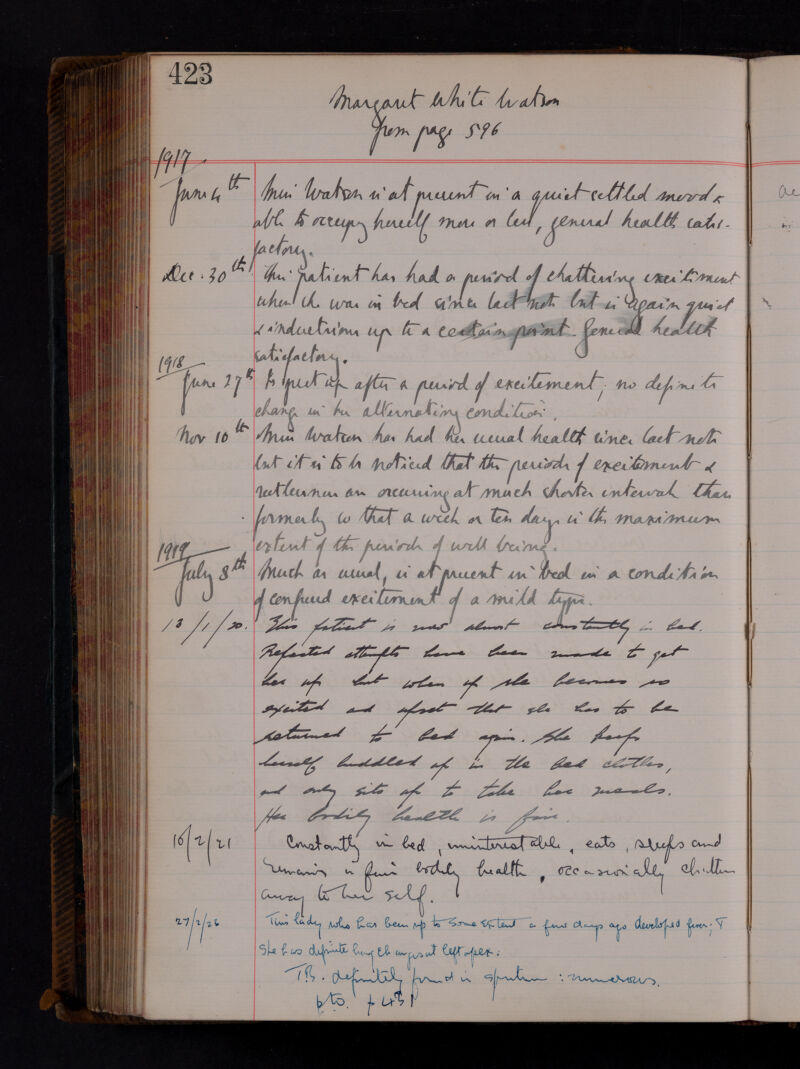 423
Margaret White Watson
from page 596
1917
June 4th Miss Watson is at present in a quiet settled mood &
able to occupy herself more or less, general health satis-
factory.
Dec. 30th This patient has had a period of chattering excitement
when she was in bed since last note but is again quiet
& industrious up to a certain point. General health
satisfactory.
1918
June 27th Is just up after a period of excitement; no definite
change in her alternating condition.
Nov 10th Miss Watson has had her usual health since last note
but it is to be noticed that the periods of excitement &
restlessness are occurring at much shorter intervals than
formerly so that a week or ten days is the maximum
extent of the periods of well being.
1919
July 8th Much as usual, is at present in bed in a condition
of confused excitement of a mild type.
13/1/20. This patient is now almost constantly in bed.
Repeated attempts have been made to get
her up but when up she becomes so
excited and upset that she has to be
returned to bed again. She keeps
herself huddled up in the bed clothes,
and only sits up to take her meals.
Her bodily health is fair.
10/2/21 Constantly in bed, uninterestable, eats, sleeps and
remains in fair bodily health, occasionally chatters
away to her self.
27/2/26 This lady who has been up to some extent a few days ago developed fever; &
she has definite lung changes at left apex:
T.B. definitely found in sputum: numerous.
pto. p 451